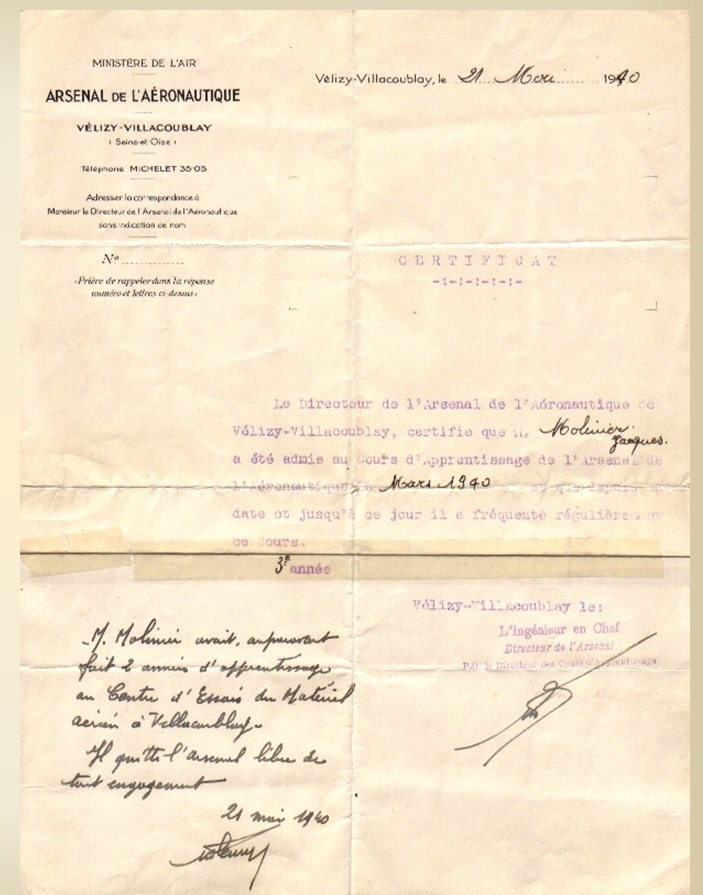 MINISTÈRE DE L'AIR
ARSENAL DE L'AÉRONAUTIQUE
VÉLIZY-VILLACOUBLAY
(Seine-et Oise)
Téléphone MICHELET 35-05
Adresser la correspondance à
Monsieur le Directeur de l'Arsenal de l'Aéronautique
sans indication de nom
N° ..................
«Prière de rappeler dans la réponse
numéro et lettres ci-dessus»
Vélizy-Villacoublay, le 21 Mai 1940
CERTIFICAT
-:-:-:-:-:-
Le Directeur de l'Arsenal de l'Aéronautique de
Vélizy-Villacoublay, certifie que M. Molinier Jacques.
a été admis au Cours d'Apprentissage de l'Arsenal de
l'Aéronautique Mars 1940 depuis
date et jusqu'à ce jour il a fréquenté régulièrement
ce Cours.
3e année
Vélizy-Villacoublay le:
L'Ingénieur en Chef
Directeur de l'Arsenal
P.O. le Directeur des Cours d'Apprentissage
M. Molinier avait, auparavant
fait 2 années d'apprentissage
au Centre d'Essais du Matériel
aérien à Villacoublay.
Il quitte l'arsenal libre de
tout engagement
21 mai 1940